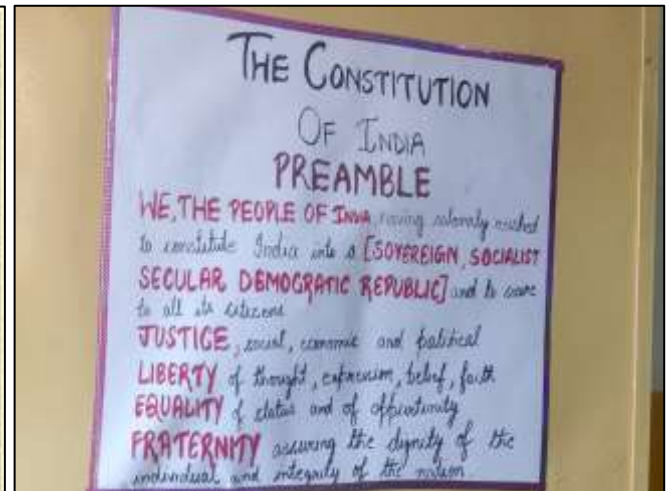 THE CONSTITUTION
OF INDIA
PREAMBLE
WE, THE PEOPLE OF INDIA, having solemnly resolved
to constitute India into a [SOVEREIGN, SOCIALIST
SECULAR DEMOCRATIC REPUBLIC] and to secure
to all its citizens
JUSTICE, social, economic and political
LIBERTY of thought, expression, belief, faith
EQUALITY of status and of opportunity
FRATERNITY assuring the dignity of the
individual and integrity of the nation